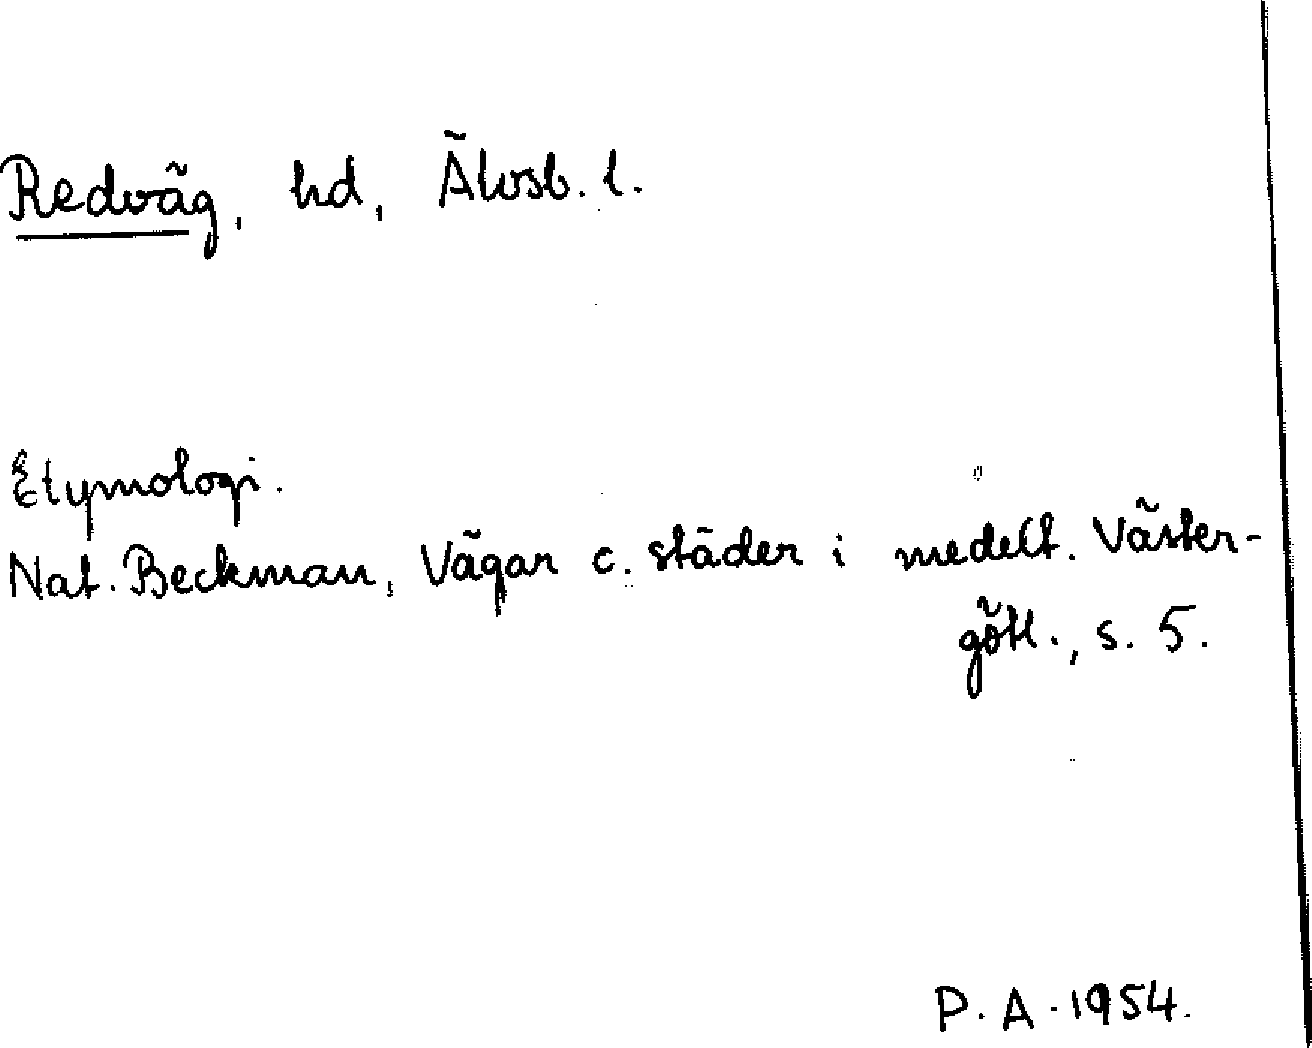 Redväg, hd, Älvsb. l.
Etymologi.
Nat. Beckman, Vägar c. städer i medelt. Väster-
götl., s. 5.
P. A. 1954.